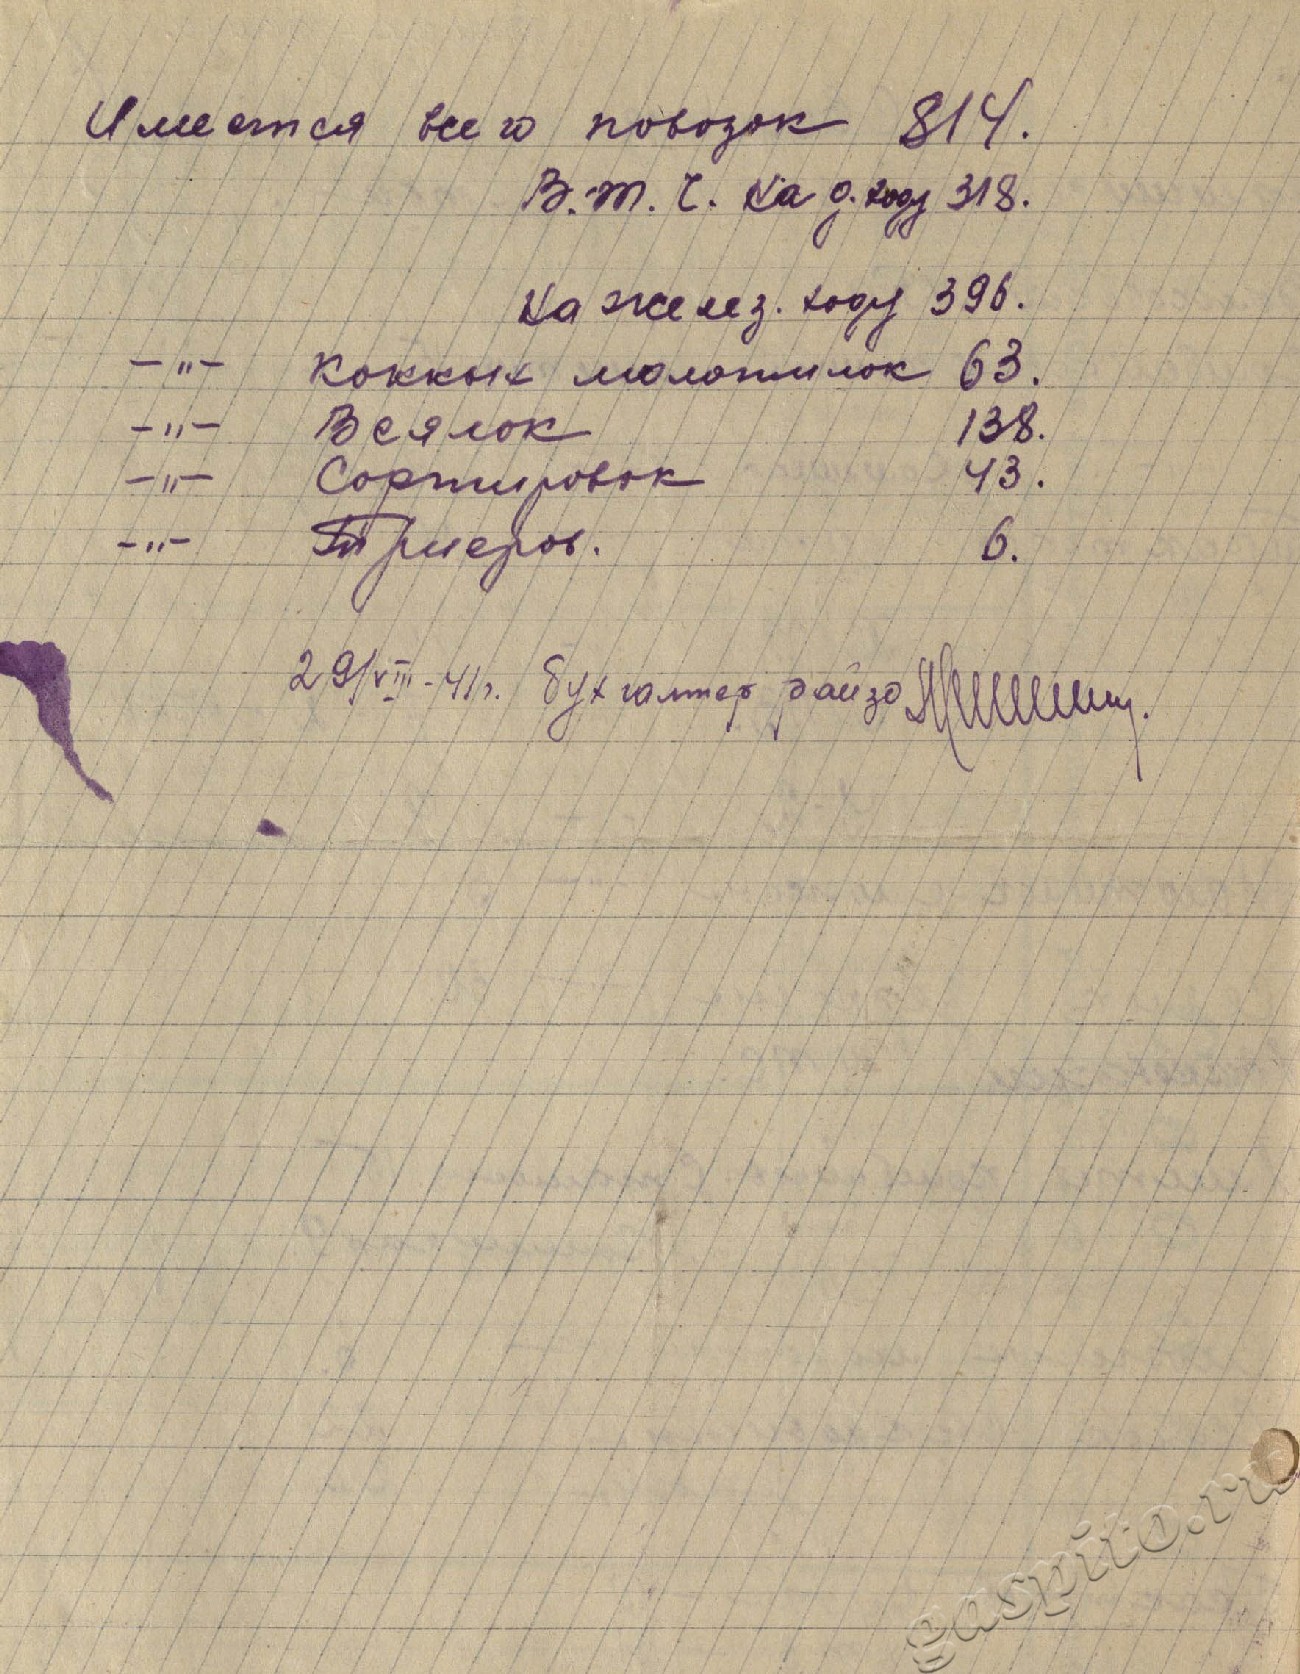 Имеется всего повозок 814.
В.т.ч. на д. ходу 318.
на желез. ходу 396.
-"- конных молотилок 63.
-"- Веялок 138.
-"- Сортировок 43.
-"- Триеров. 6.
29/VIII-41г. бухгалтер райзо
gaspito.ru